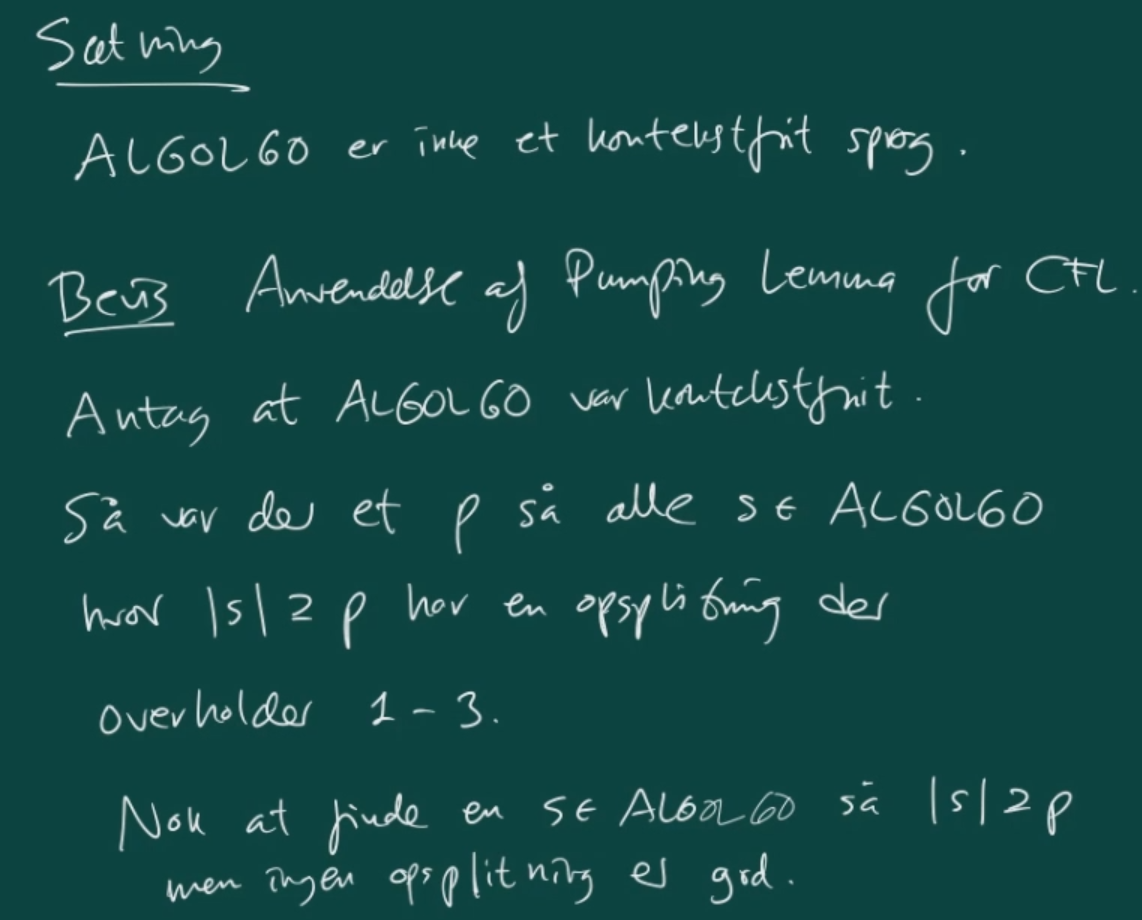 Sætning
ALGOL60 er ikke et kontekstfrit sprog.
Bevis Anvendelse af Pumping Lemma for CFL.
Antag at ALGOL60 var kontekstfrit.
Så var der et p så alle s ∈ ALGOL60
hvor |s| ≥ p har en opsplitning der
overholder 1 - 3.
Nok at finde en s ∈ ALGOL60 så |s| ≥ p
men ingen opsplitning er god.